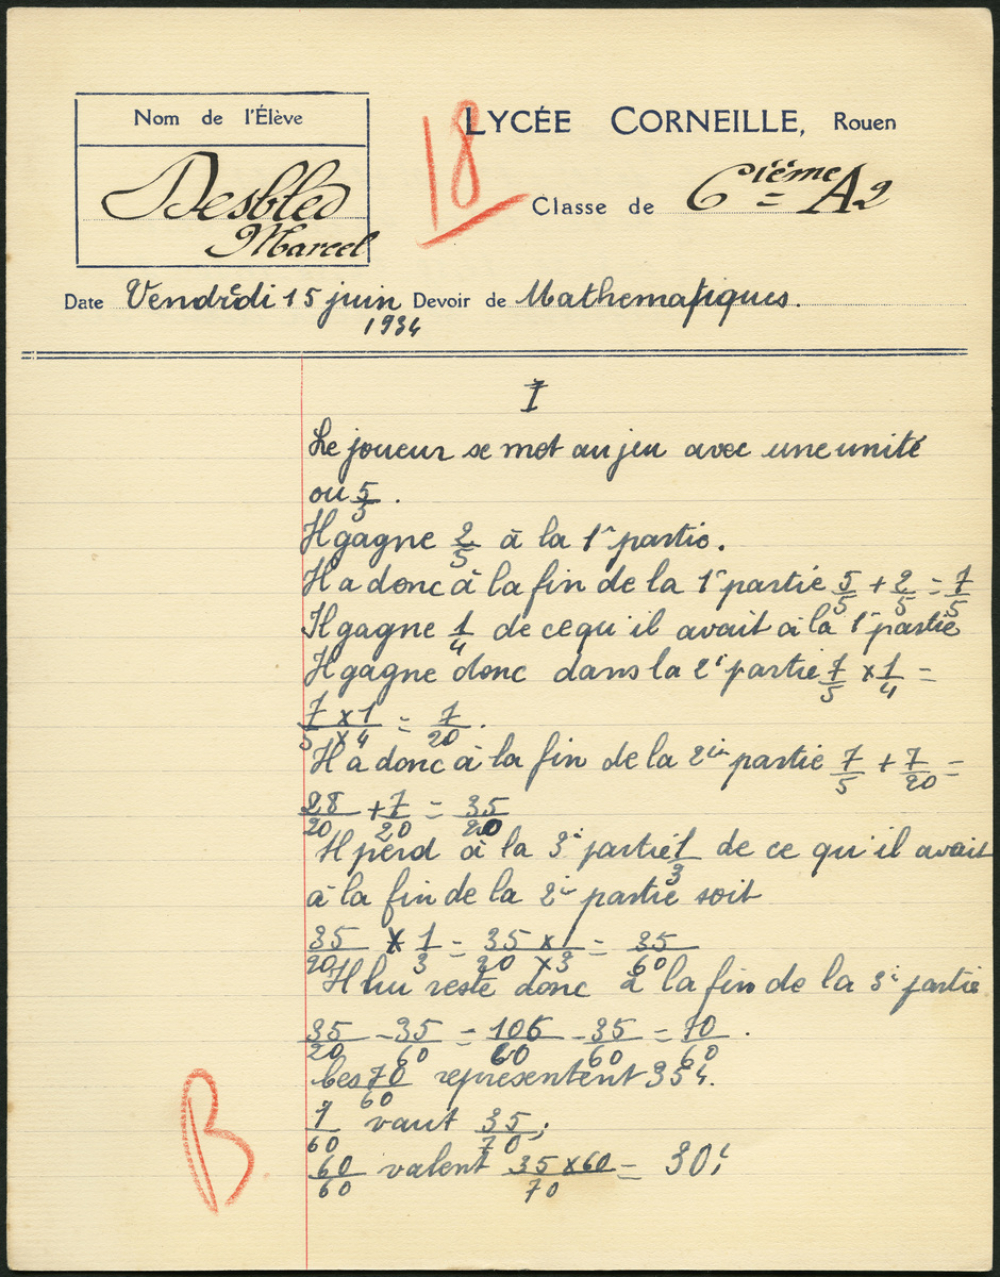 Nom de l'Élève
Desbled
Marcel
18
LYCÉE CORNEILLE, Rouen
Classe de 6ième A2
Date Vendredi 15 juin 1934 Devoir de Mathematiques.
I
Le joueur se met au jeu avec une unité
ou 5/5.
Il gagne 2/5 à la 1e partie.
Il a donc à la fin de la 1e partie 5/5 + 2/5 = 7/5
Il gagne 1/4 de ce qu'il avait à la 1e partie
Il gagne donc dans la 2e partie 7/5 x 1/4 =
7 x 1/5 x 4 = 7/20.
Il a donc à la fin de la 2ie partie 7/5 + 7/20 =
28/20 + 7/20 = 35/20
Il perd à la 3e partie 1/3 de ce qu'il avait
à la fin de la 2e partie soit
35/20 x 1/3 = 35 x 1/20 x 3 = 35/60
Il lui reste donc à la fin de la 3e partie
35/20 - 35/60 = 105/60 - 35/60 = 70/60.
Ces 70/60 représentent 35f.
1/60 vaut 35/70;
60/60 valent 35 x 60/70 = 30f
B